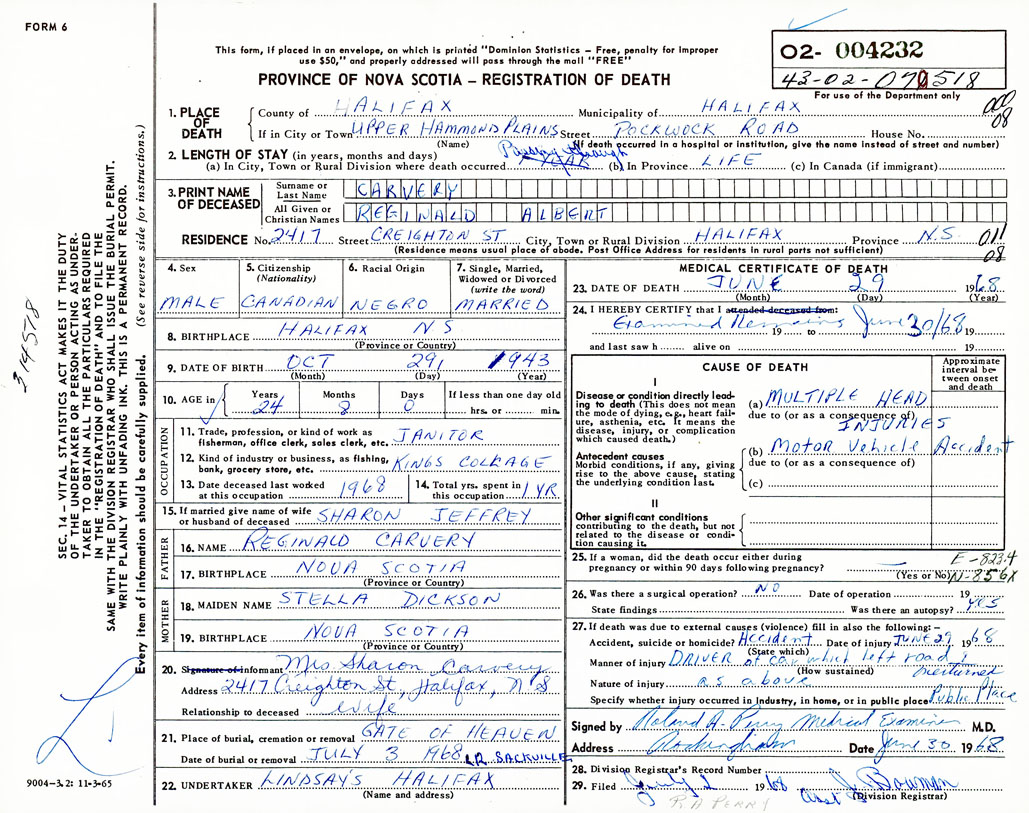 FORM 6
This form, if placed in an envelope, on which is printed "Dominion Statistics – Free, penalty for improper
use $50," and properly addressed will pass through the mail "FREE"
PROVINCE OF NOVA SCOTIA – REGISTRATION OF DEATH
02- 004232
43-02-070518
For use of the Department only
000
08
1. PLACE OF DEATH
County of HALIFAX Municipality of HALIFAX
If in City or Town UPPER HAMMOND PLAINS Street POCKWOCK ROAD House No.
(Name) (If death occurred in a hospital or institution, give the name instead of street and number)
2. LENGTH OF STAY (in years, months and days) Passing through
(a) In City, Town or Rural Division where death occurred (b) In Province LIFE (c) In Canada (if immigrant)
3. PRINT NAME OF DECEASED
Surname or Last Name CARVERY
All Given or Christian Names REGINALD ALBERT
RESIDENCE No. 2417 Street CREIGHTON ST City, Town or Rural Division HALIFAX Province N.S. 011
08
(Residence means usual place of abode. Post Office Address for residents in rural parts not sufficient)
4. Sex MALE
5. Citizenship (Nationality) CANADIAN
6. Racial Origin NEGRO
7. Single, Married, Widowed or Divorced (write the word) MARRIED
8. BIRTHPLACE HALIFAX N S
(Province or Country)
9. DATE OF BIRTH OCT 29, 1943
(Month) (Day) (Year)
10. AGE in Years 24 Months 8 Days 0 If less than one day old hrs. or min.
OCCUPATION
11. Trade, profession, or kind of work as JANITOR
fisherman, office clerk, sales clerk, etc.
12. Kind of industry or business, as fishing, KINGS COLLAGE
bank, grocery store, etc.
13. Date deceased last worked at this occupation 1968
14. Total yrs. spent in this occupation 1 YR
15. If married give name of wife or husband of deceased SHARON JEFFREY
FATHER
16. NAME REGINALD CARVERY
17. BIRTHPLACE NOVA SCOTIA
(Province or Country)
MOTHER
18. MAIDEN NAME STELLA DICKSON
19. BIRTHPLACE NOVA SCOTIA
(Province or Country)
20. Signature of informant Mrs. Sharon Carvery
Address 2417 Creighton St, Halifax, N S
Relationship to deceased wife
21. Place of burial, cremation or removal GATE OF HEAVEN
Date of burial or removal JULY 3 1968 LR. SACKVILLE
22. UNDERTAKER LINDSAY'S HALIFAX
(Name and address)
MEDICAL CERTIFICATE OF DEATH
23. DATE OF DEATH JUNE 29 1968
(Month) (Day) (Year)
24. I HEREBY CERTIFY that I attended deceased from:
Examined Remains 19 to June 30/68 19
and last saw h alive on 19
CAUSE OF DEATH
Approximate interval between onset and death
I
Disease or condition directly leading to death (This does not mean the mode of dying, e.g., heart failure, asthenia, etc. It means the disease, injury, or complication which caused death.)
(a) MULTIPLE HEAD
due to (or as a consequence of)
INJURIES
Antecedent causes
Morbid conditions, if any, giving rise to the above cause, stating the underlying condition last.
(b) Motor Vehicle Accident
due to (or as a consequence of)
(c)
II
Other significant conditions
contributing to the death, but not related to the disease or condition causing it.
25. If a woman, did the death occur either during E-823.4
pregnancy or within 90 days following pregnancy? (Yes or No) N-856X
26. Was there a surgical operation? NO Date of operation 19
State findings Was there an autopsy? YES
27. If death was due to external causes (violence) fill in also the following:–
Accident, suicide or homicide? Accident Date of injury JUNE 29 1968
(State which)
Manner of injury DRIVER of car which left road &
(How sustained) overturned
Nature of injury as above
Specify whether injury occurred in Industry, in home, or in public place Public Place
Signed by Roland A. Perry Medical Examiner M.D.
Address Rockingham Date June 30 1968
28. Division Registrar's Record Number
29. Filed July 2 1968 J. Bowman
Asst (Division Registrar)
R A PERRY
SEC. 14 – VITAL STATISTICS ACT MAKES IT THE DUTY
OF THE UNDERTAKER OR PERSON ACTING AS UNDER-
TAKER TO OBTAIN ALL THE PARTICULARS REQUIRED
IN THE "REGISTRATION OF DEATH" AND TO FILE THE
SAME WITH THE DIVISION REGISTRAR WHO SHALL ISSUE THE BURIAL PERMIT.
WRITE PLAINLY WITH UNFADING INK. THIS IS A PERMANENT RECORD.
Every item of information should be carefully supplied. (See reverse side for instructions.)
9004-3.2: 11-3-65